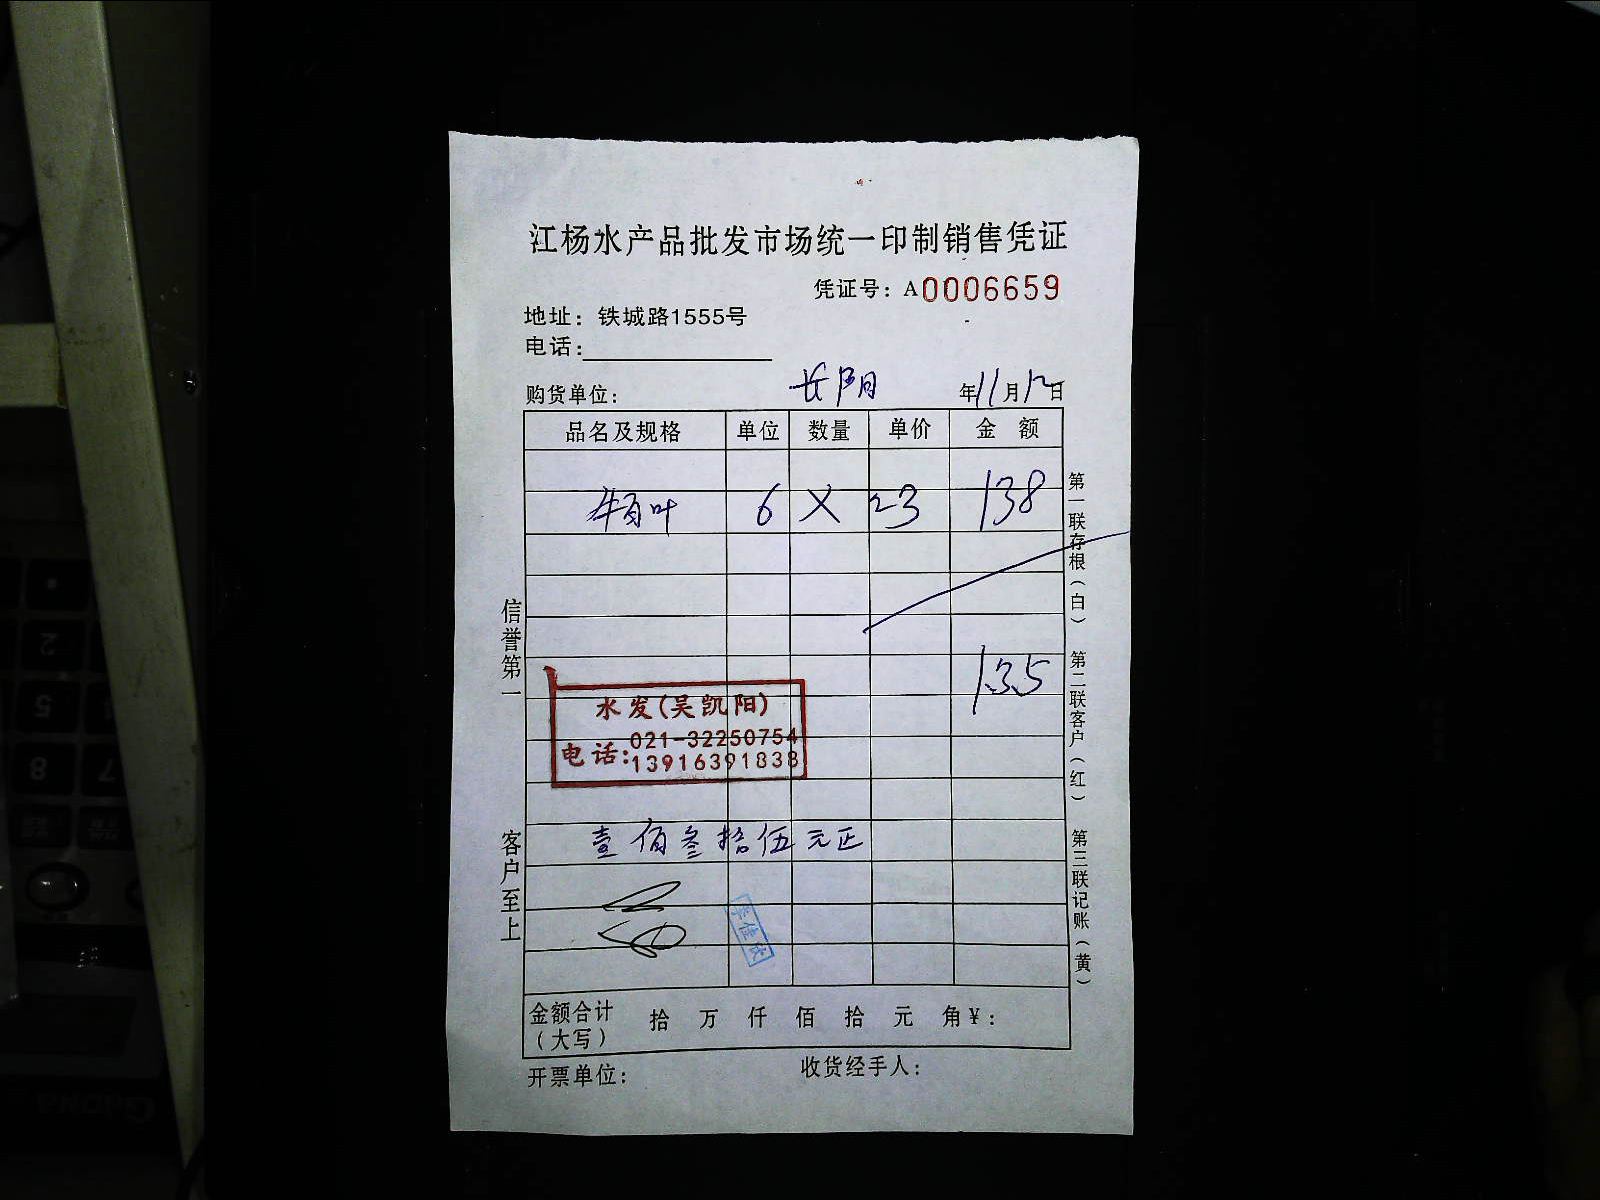 江杨水产品批发市场统一印制销售凭证
凭证号：A0006659
地址：铁城路1555号
电话：
购货单位： 长阳 年11月12日
品名及规格 单位 数量 单价 金 额
牛百叶 6 X 23 138
135
水发(吴凯阳)
电话:021-32250754
13916391838
壹佰叁拾伍元正
李佳欣
金额合计（大写） 拾 万 仟 佰 拾 元 角￥：
开票单位： 收货经手人：
信誉第一
客户至上
第一联存根（白）
第二联客户（红）
第三联记账（黄）
2
5
8
7